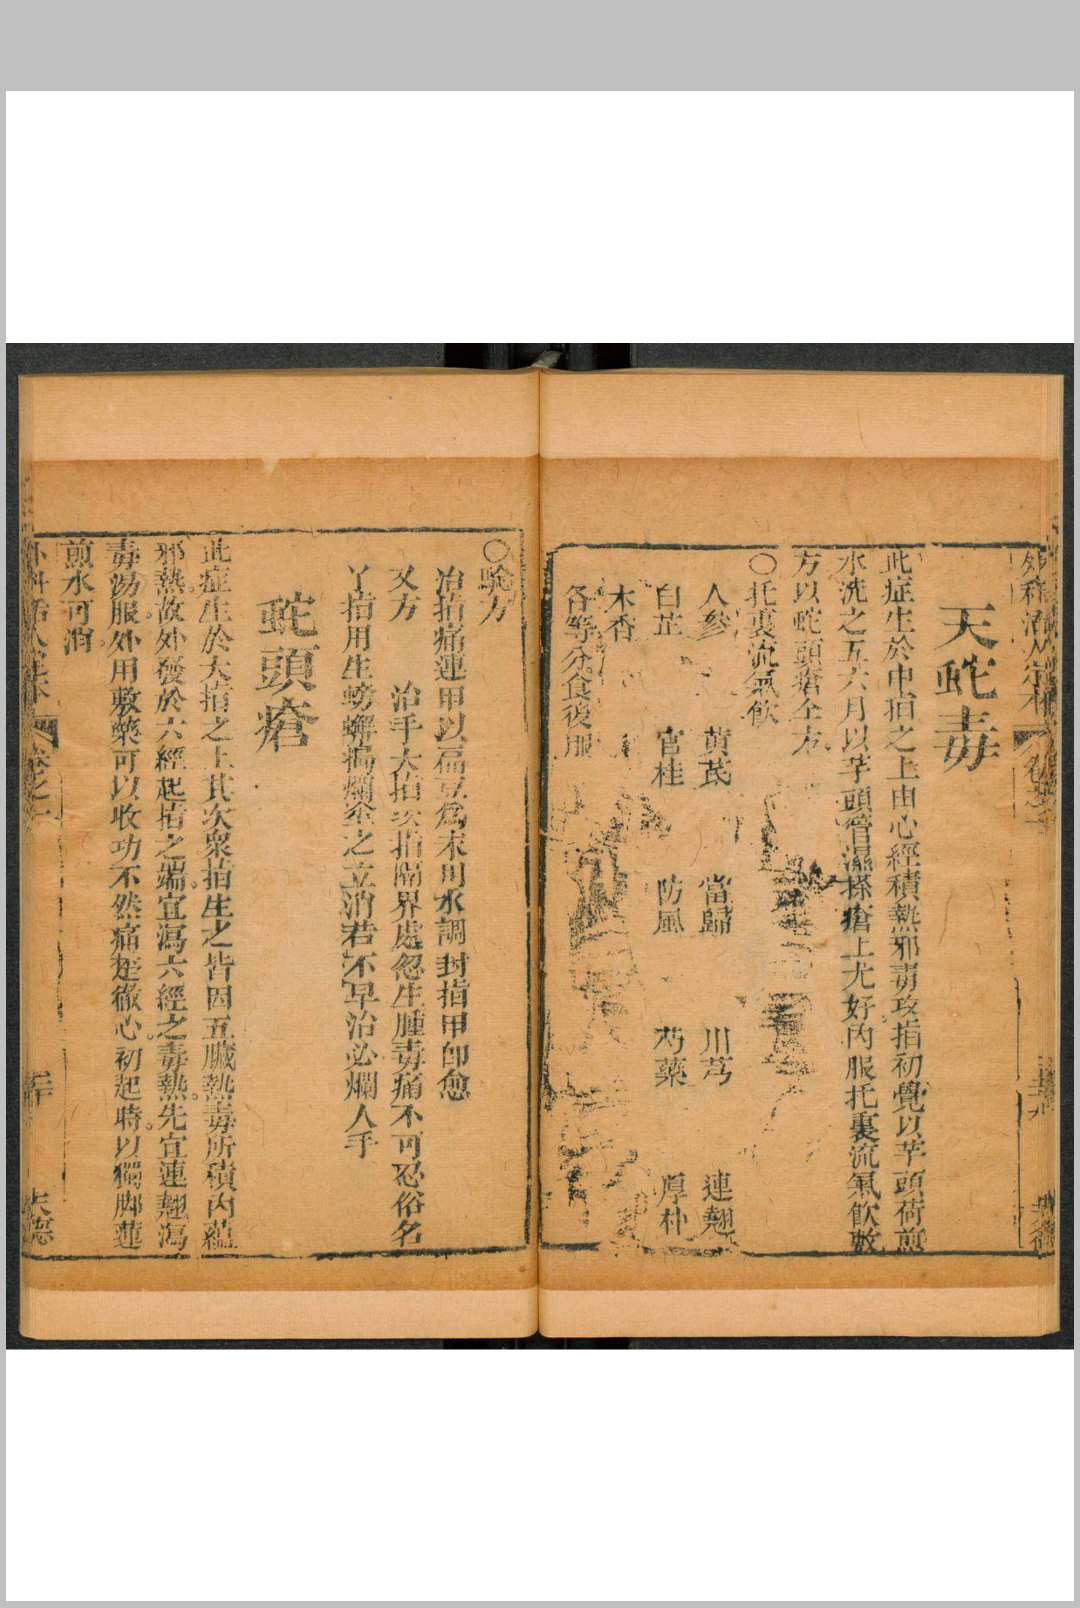 天蛇毒
此症生於中指之上由心經積熱邪毒攻指初覺以芋頭荷煎
水洗之五六月以芋頭管濕搽瘡上尤好內服托裏流氣飲敷
方以蛇頭瘡仝方
○托裏流氣飲
人參 黃芪 當歸 川芎 連翹
白芷 官桂 防風 芍藥 厚朴
木香
各等分食後服
○驗方
治指痛連甲以藊豆爲末用水調封指甲即愈
又方 治手大指次指隔界處忽生腫毒痛不可忍俗名
丫指用生螃蠏搗爛塗之立消若不早治必爛人手
蛇頭瘡
此症生於大指之上其次衆指生之皆因五臟熱毒所積內蘊
邪熱故外發於六經起指之端宜瀉六經之毒熱先宜連翹瀉
毒湯服外用敷藥可以收功不然痛楚徹心初起時以獨脚蓮
煎水可消